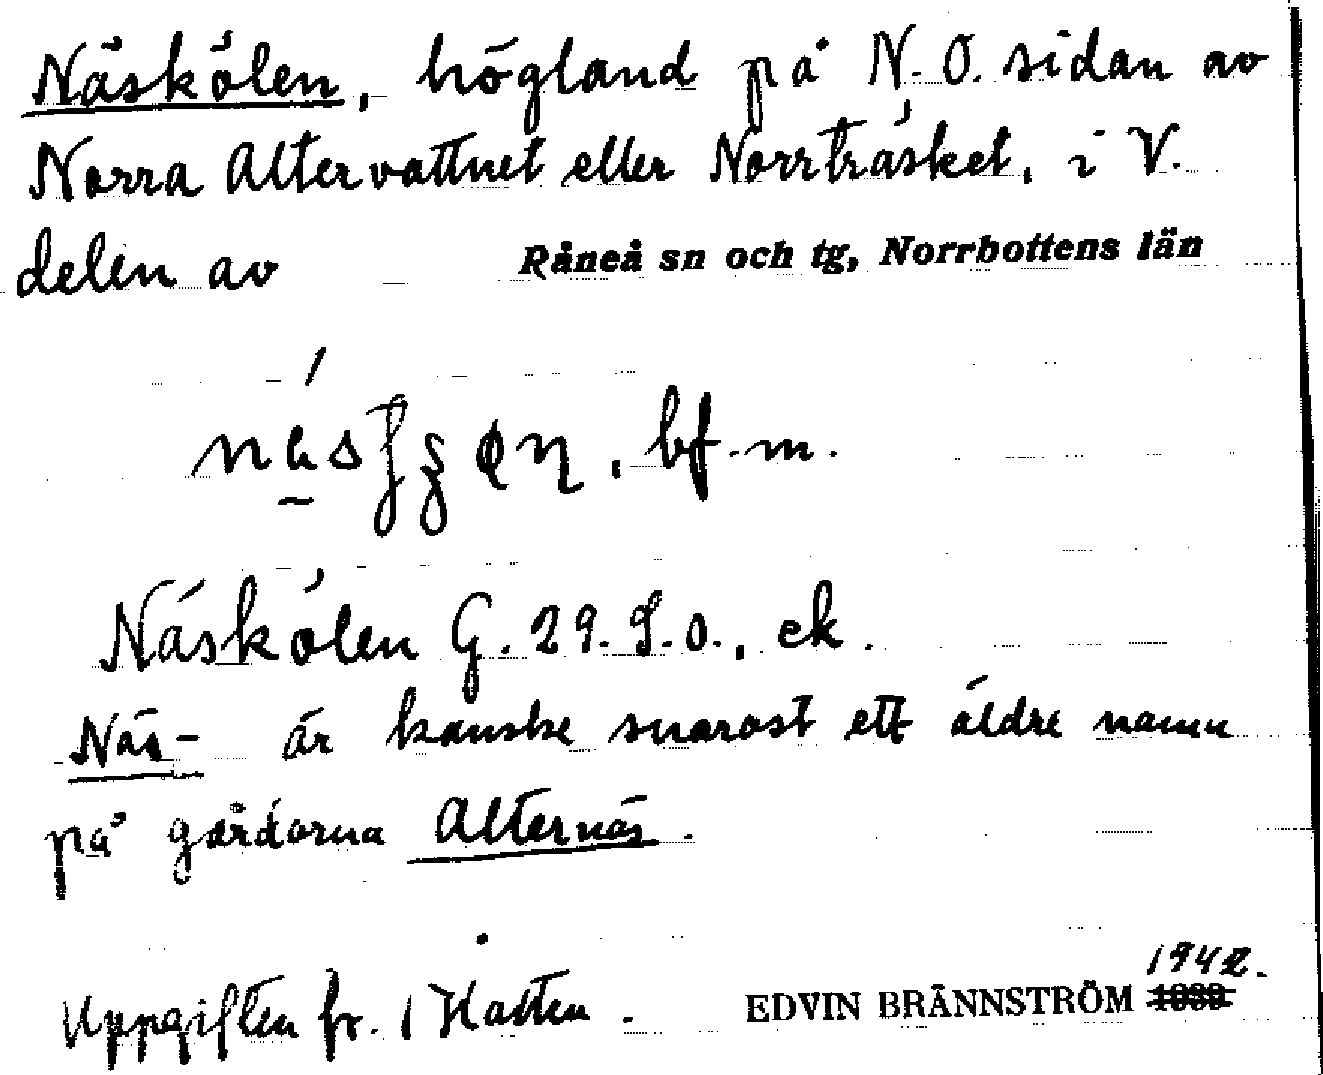 Näskölen, högland på N.O. sidan av
Norra Altervattnet eller Norrträsket, i V.
delen av Råneå sn och tg, Norrbottens län
bf. m.
Näskölen G. 29. S.o., ek.
Näs- är kanske snarast ett äldre namn
på gårdarna Alternäs.
1942.
Uppgiften fr. 1 Hatten. EDVIN BRÄNNSTRÖM 1939